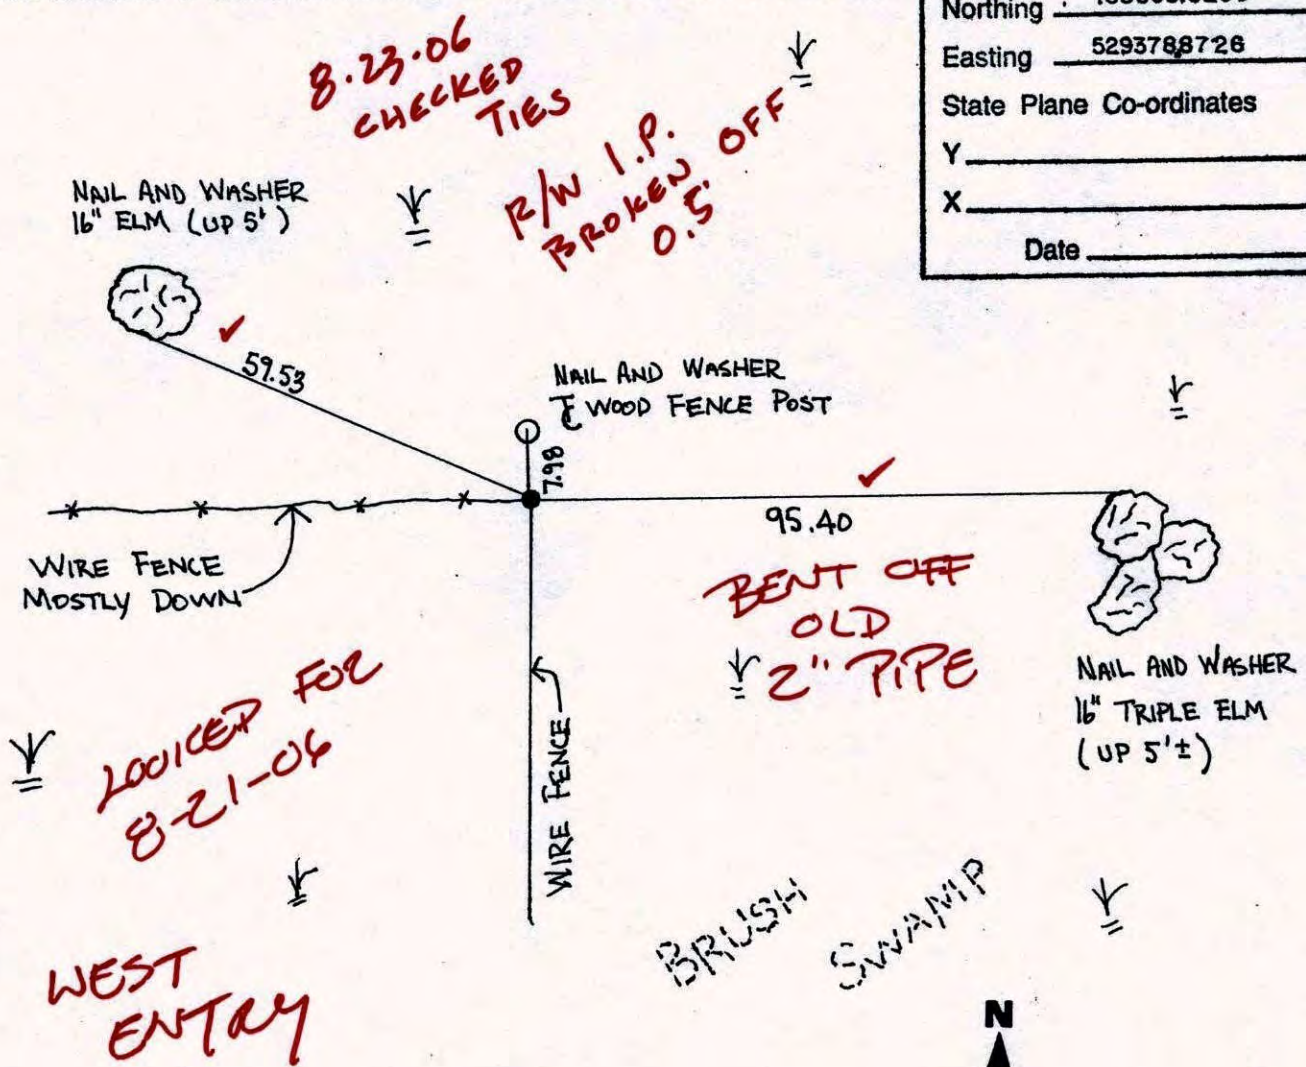 Northing
Easting 529378.8726
State Plane Co-ordinates
Y
X
Date
8.23.06
CHECKED
TIES
R/W I.P.
BROKEN OFF
0.5
NAIL AND WASHER
16" ELM (UP 5')
59.53
NAIL AND WASHER
WOOD FENCE POST
7.98
95.40
WIRE FENCE
MOSTLY DOWN
BENT OFF
OLD
2" PIPE
NAIL AND WASHER
16" TRIPLE ELM
(UP 5'±)
LOOKED FOR
8-21-06
WIRE FENCE
BRUSH SWAMP
WEST
ENTRY
N